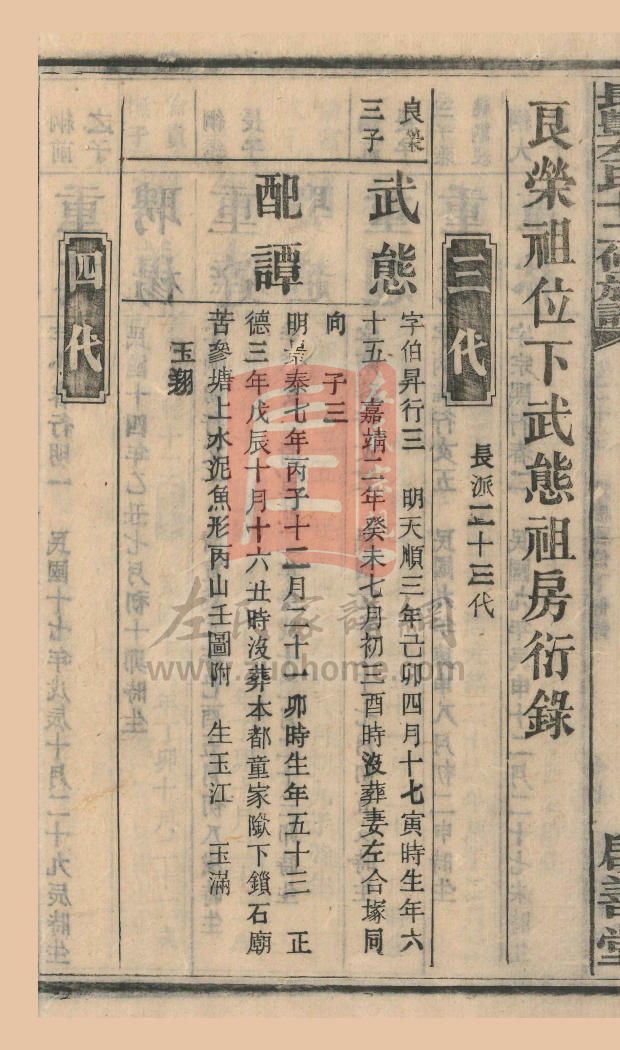 良榮祖位下武態祖房衍錄
三代
長派二十三代
良榮
三子
武態
字伯昇行三 明天順三年己卯四月十七寅時生年六
十五 嘉靖二年癸未七月初三酉時沒葬妻左合塚同
向 子三
配譚
明景泰七年丙子十二月二十一卯時生年五十三 正
德三年戊辰十月十六丑時沒葬本都童家歘下鎖石廟
苦參塘上水泥魚形丙山壬圖附 生玉江 玉滿
玉翔
四代
左氏家譜網
www.zuohome.com